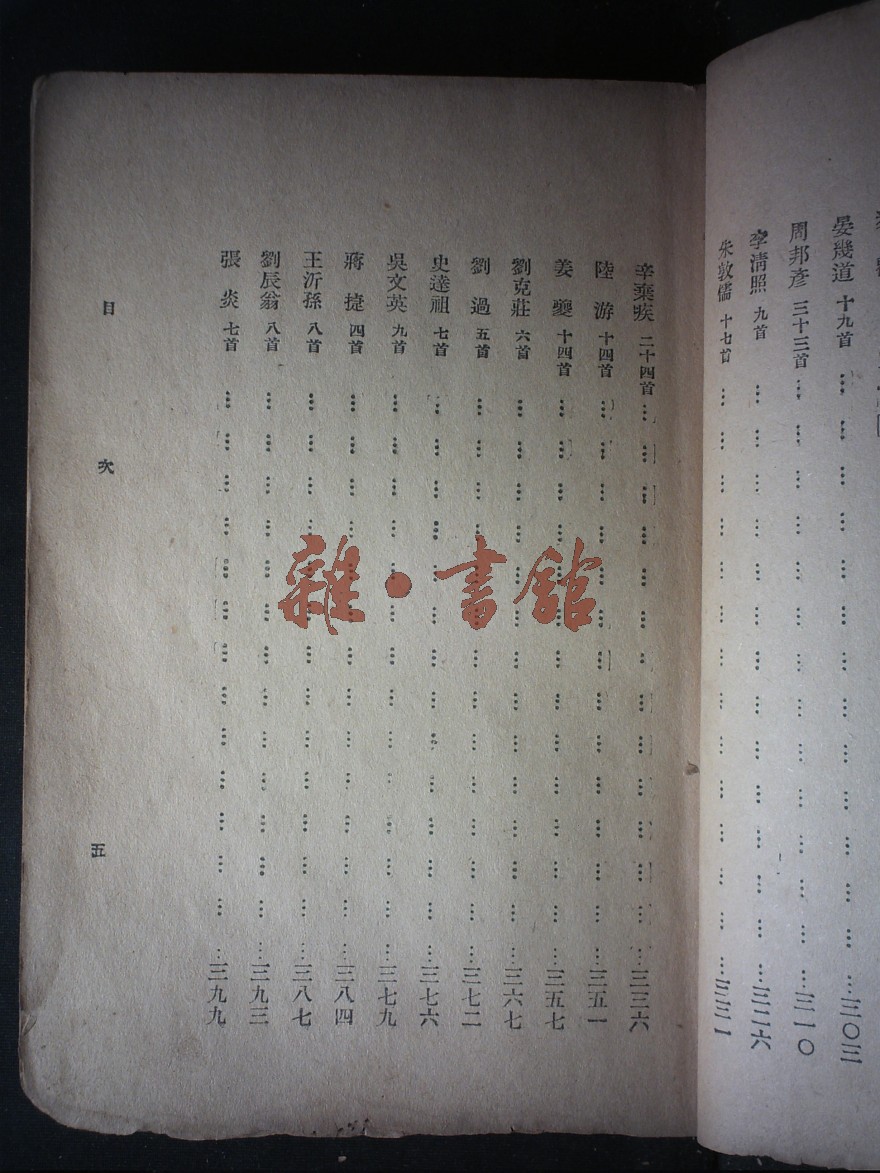 晏幾道 十九首 … … … … … … … … … … … … … … 三〇三
周邦彥 三十三首 … … … … … … … … … … … … … … 三一〇
李清照 九首 … … … … … … … … … … … … … … 三二六
朱敦儒 十七首 … … … … … … … … … … … … … … 三三一
辛棄疾 二十四首 … … … … … … … … … … … … … … 三三六
陸游 十四首 … … … … … … … … … … … … … … 三五一
姜夔 十四首 … … … … … … … … … … … … … … 三五七
劉克莊 六首 … … … … … … … … … … … … … … 三六七
劉過 五首 … … … … … … … … … … … … … … 三七二
史達祖 七首 … … … … … … … … … … … … … … 三七六
吳文英 九首 … … … … … … … … … … … … … … 三七九
蔣捷 四首 … … … … … … … … … … … … … … 三八四
王沂孫 八首 … … … … … … … … … … … … … … 三八七
劉辰翁 八首 … … … … … … … … … … … … … … 三九三
張炎 七首 … … … … … … … … … … … … … … 三九九
目次 五
雜·書館